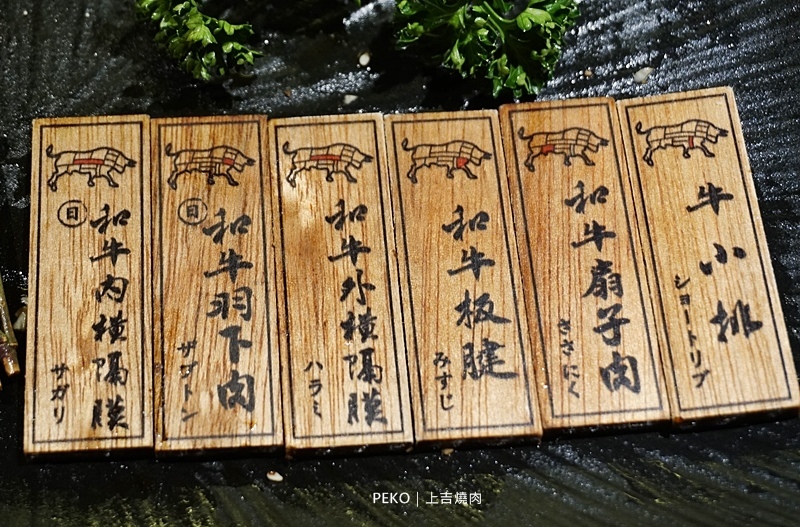 日
和牛內橫隔膜
サガリ
日
和牛羽下肉
ザブトン
和牛外橫隔膜
ハラミ
和牛板腱
みすじ
和牛扇子肉
ささにく
牛小排
ショートリブ
PEKO | 上吉燒肉